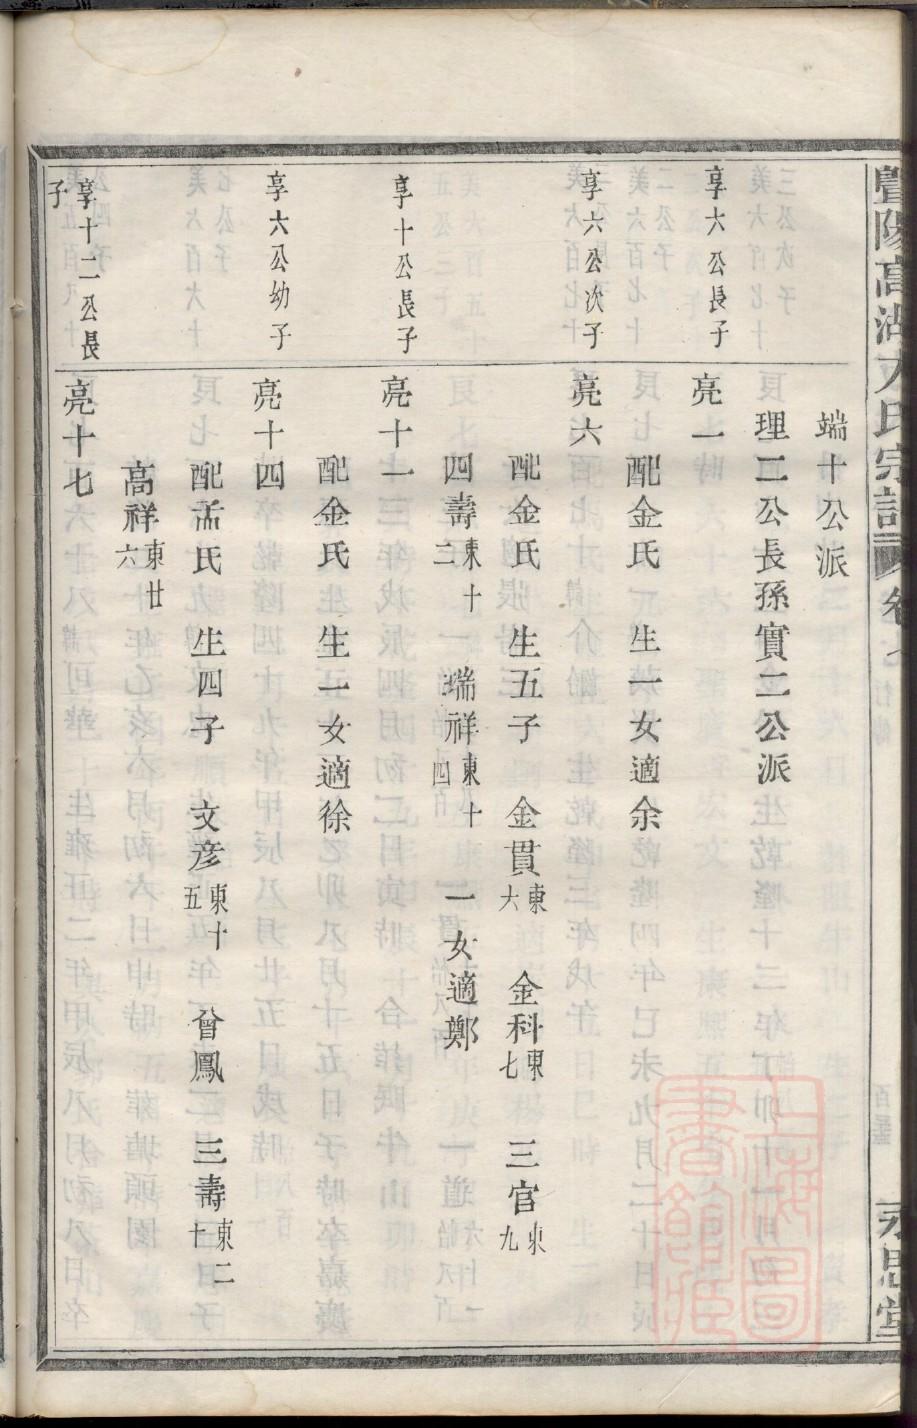 暨陽高湖 氏宗譜 卷七 行傳
永思堂
端十公派
理二公長孫實二公派
享六公長子
亮一
配金氏 生一女適余
享六公次子
亮六
配金氏 生五子 金貫東六 金科東七 三官東九
四壽東十二 瑞祥東十四 一女適鄭
享十公長子
亮十一
配金氏 生一女適徐
享六公幼子
亮十四
配孟氏 生四子 文彥東十五 曾鳳 三壽東二十
高祥東廿六
享十二公長子
亮十七